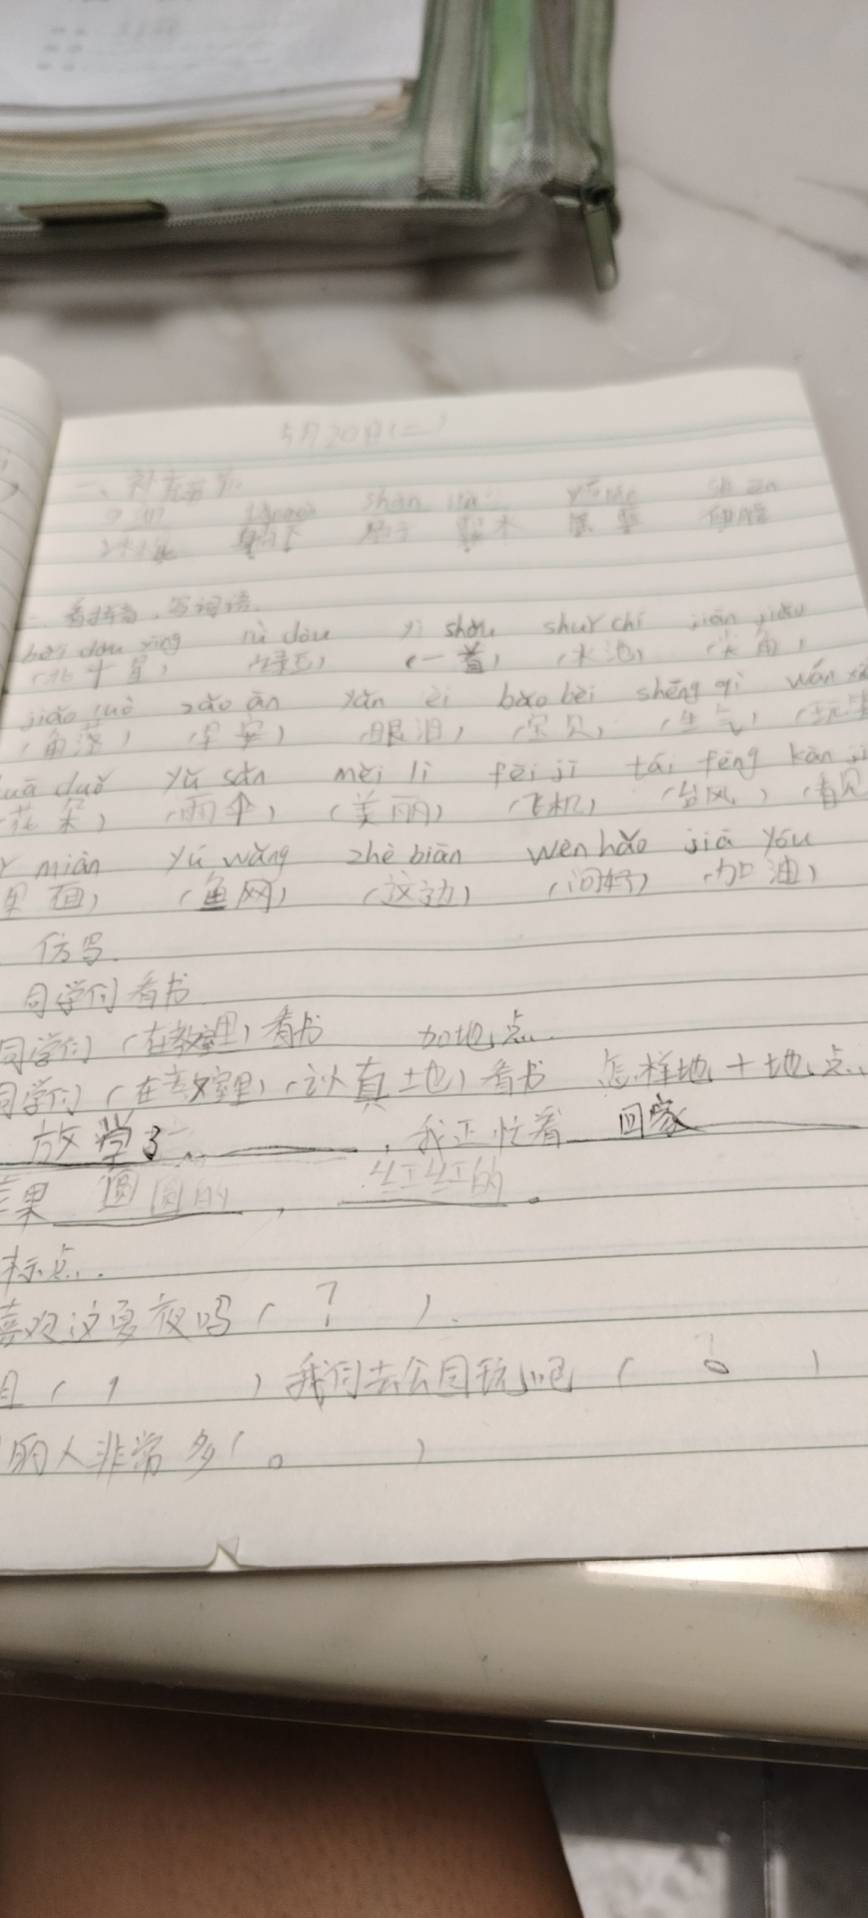 5月20日(二)
一、补充音节
shān
二、看拼音,写词语.
běi dǒu xīng lǜ dòu yì shǒu shuǐ chí jiān jiǎo
(北斗星) (绿豆) (一首) (水池) (尖角)
jiǎo luò zǎo ān yǎn lèi bǎo bèi shēng qì wán
(角落) (早安) (眼泪) (宝贝) (生气)
uā duǒ yǔ sǎn měi lì fēi jī tái fēng kàn ji
花朵) (雨伞) (美丽) (飞机) (台风) (看见
miàn yú wǎng zhè biān wèn hǎo jiā yóu
里面) (鱼网) (这边) (问好) (加油)
仿写.
同学们看书
同学们(在教室里)看书 加地点.
同学们(在教室里)(认真地)看书 怎样地+地点.
放学了,我正忙着回家
果圆圆的, 红红的。
标点.
喜欢这夏夜吗( ? ).
( , )我们去公园玩吧( 。 )
的人非常多( 。 )